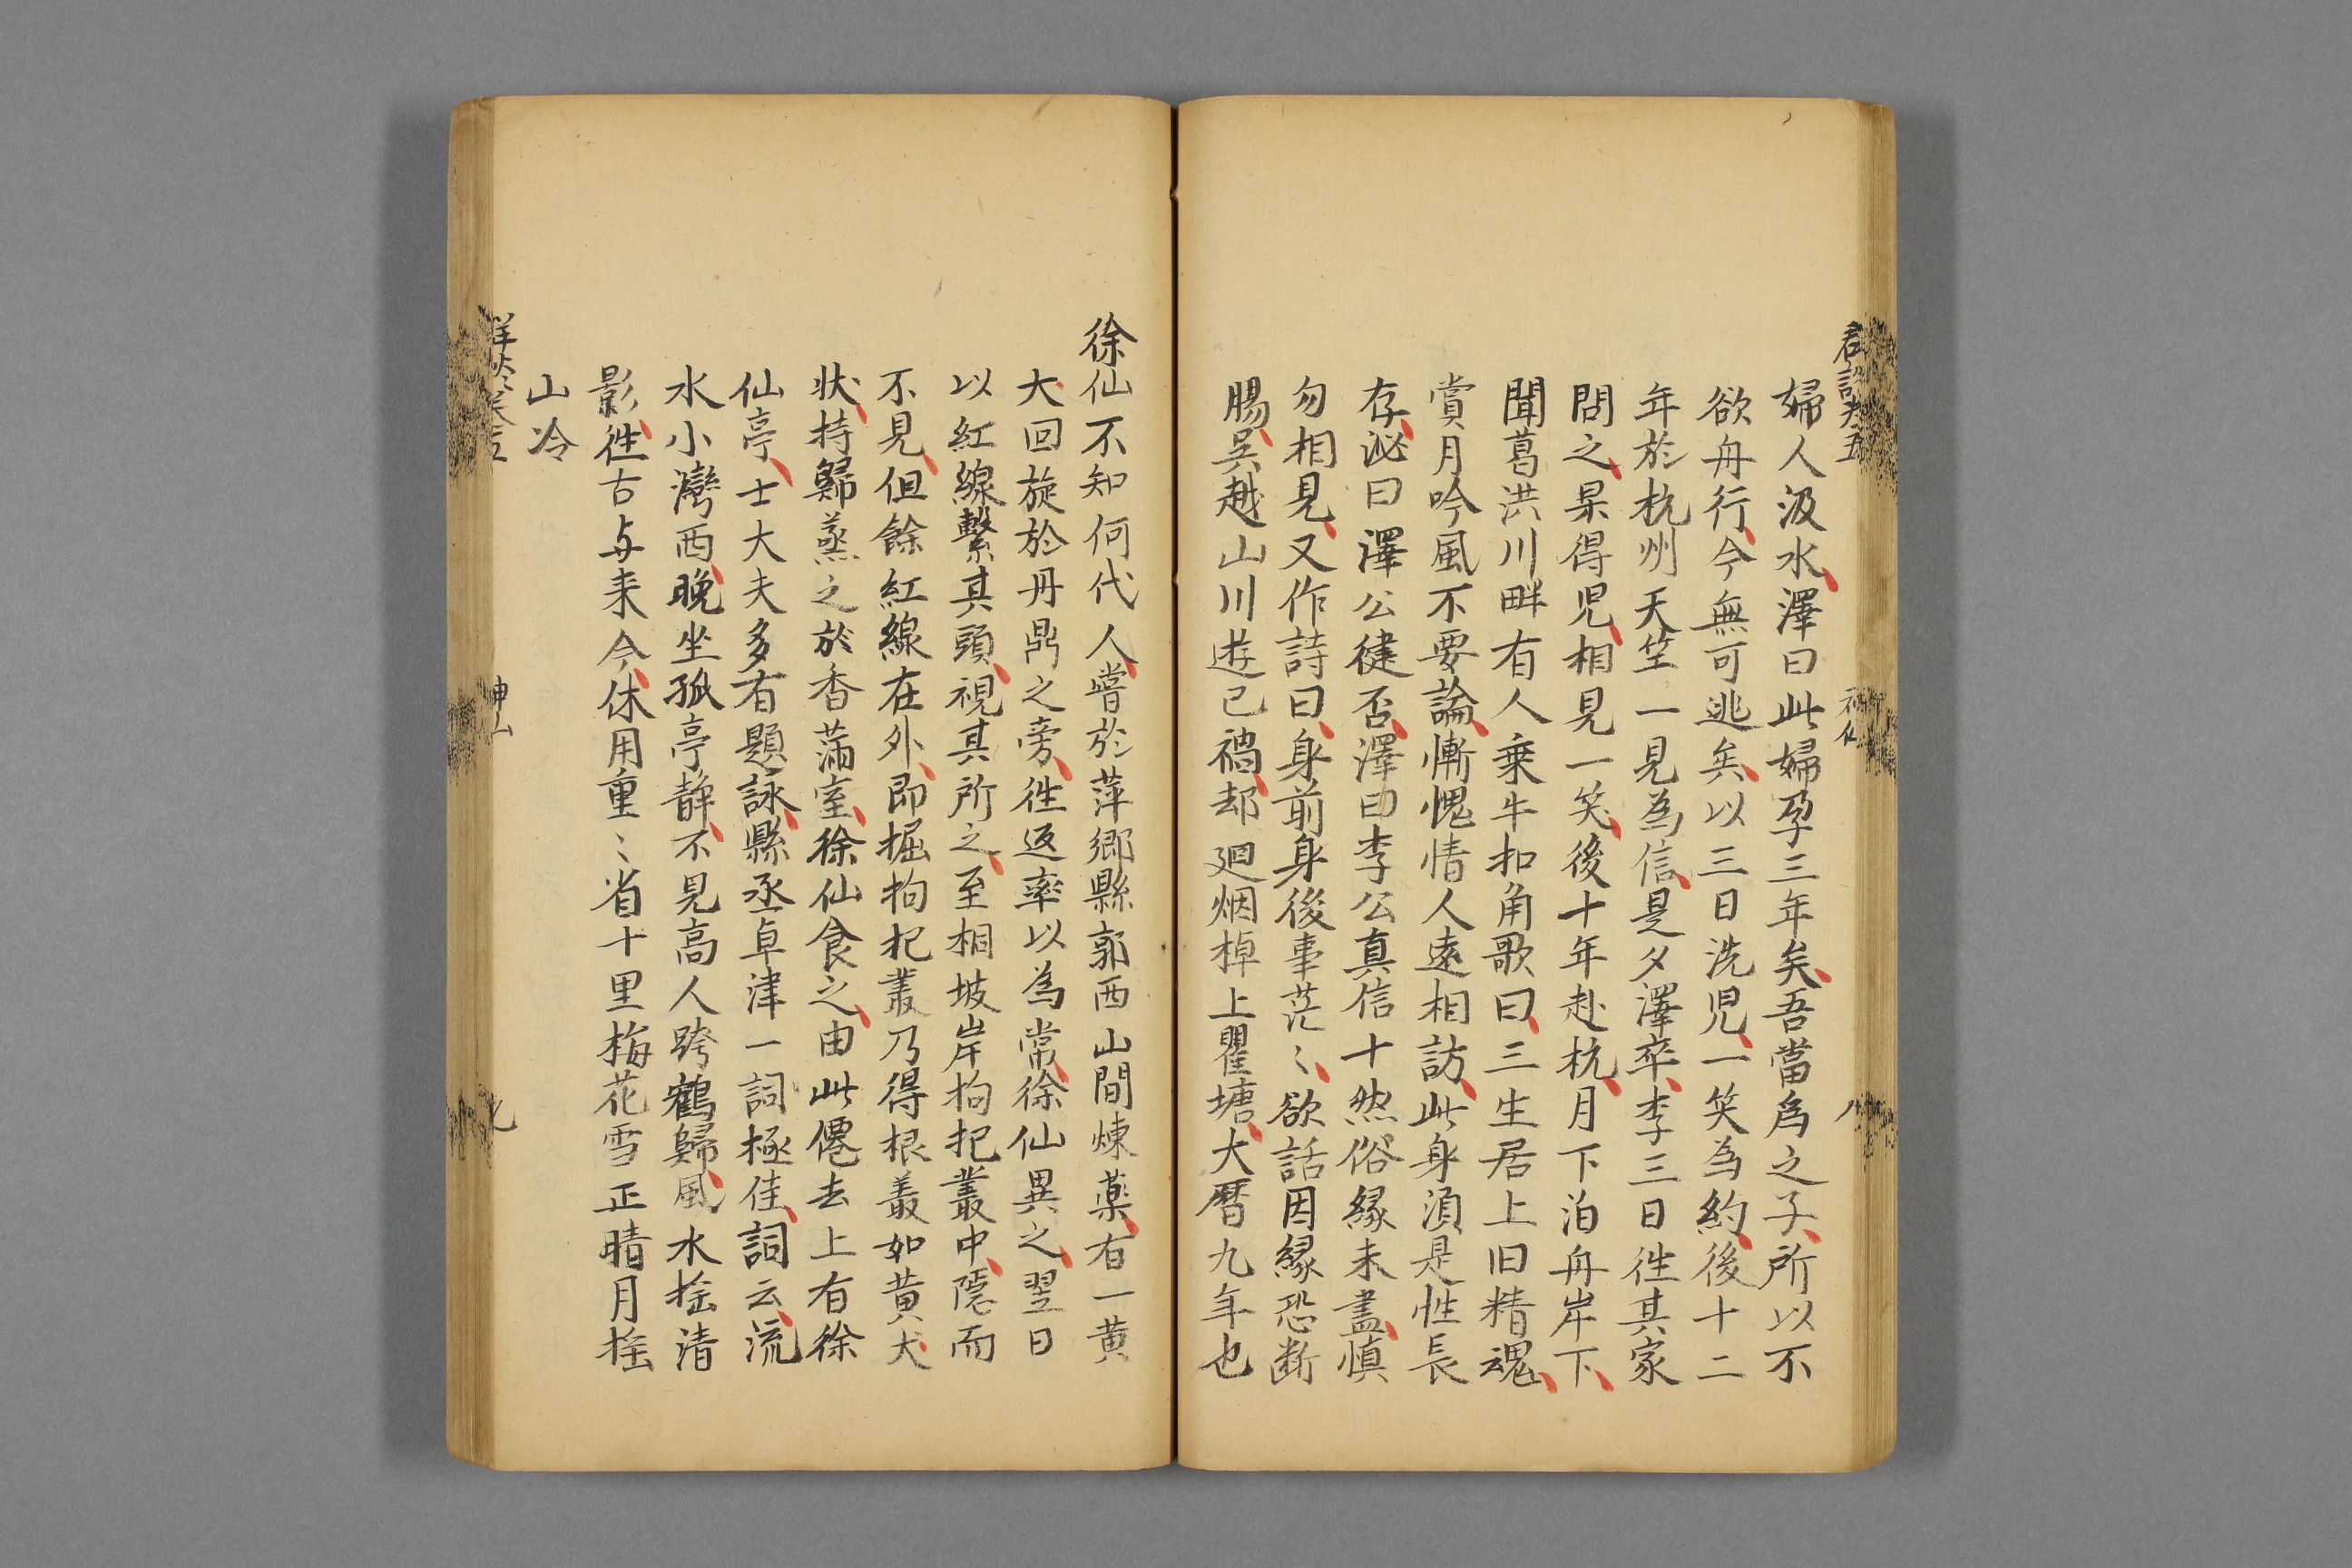 婦人汲水澤曰此婦孕三年矣吾當為之子所以不
欲舟行今無可逃矣以三日洗児一笑為約後十二
年於杭州天竺一見為信是夕澤卒李三日徃其家
問之果得児相見一笑後十年赴杭月下泊舟岸下
聞葛洪川畔有人乗牛扣角歌曰三生居上旧精魂
賞月吟風不要論慚愧情人遠相訪此身湏是性長
存泌曰澤公徤否澤曰李公真信士然俗縁未盡慎
勿相見又作詩曰身前身後事茫〻欲話因縁恐断
腸吴越山川遊已禍却廻烟棹上瞿塘大暦九年也
徐仙不知何代人嘗於萍鄉縣郭西山間煉藥有一黄
犬回旋於丹鼎之旁徃返率以為常徐仙異之翌日
以紅線繫其頭視其所之至相坡岸枸杞叢中隠而
不見但餘紅線在外即掘枸杞叢乃得根叢如黄犬
状持歸蒸之於香滿室徐仙食之由此僊去上有徐
仙亭士大夫多有題詠縣丞卓津一詞極佳詞云流
水小灣西晩坐孤亭静不見高人跨鶴歸風水揺清
影徃古与来今休用重〻省十里梅花雪正晴月揺
山冷